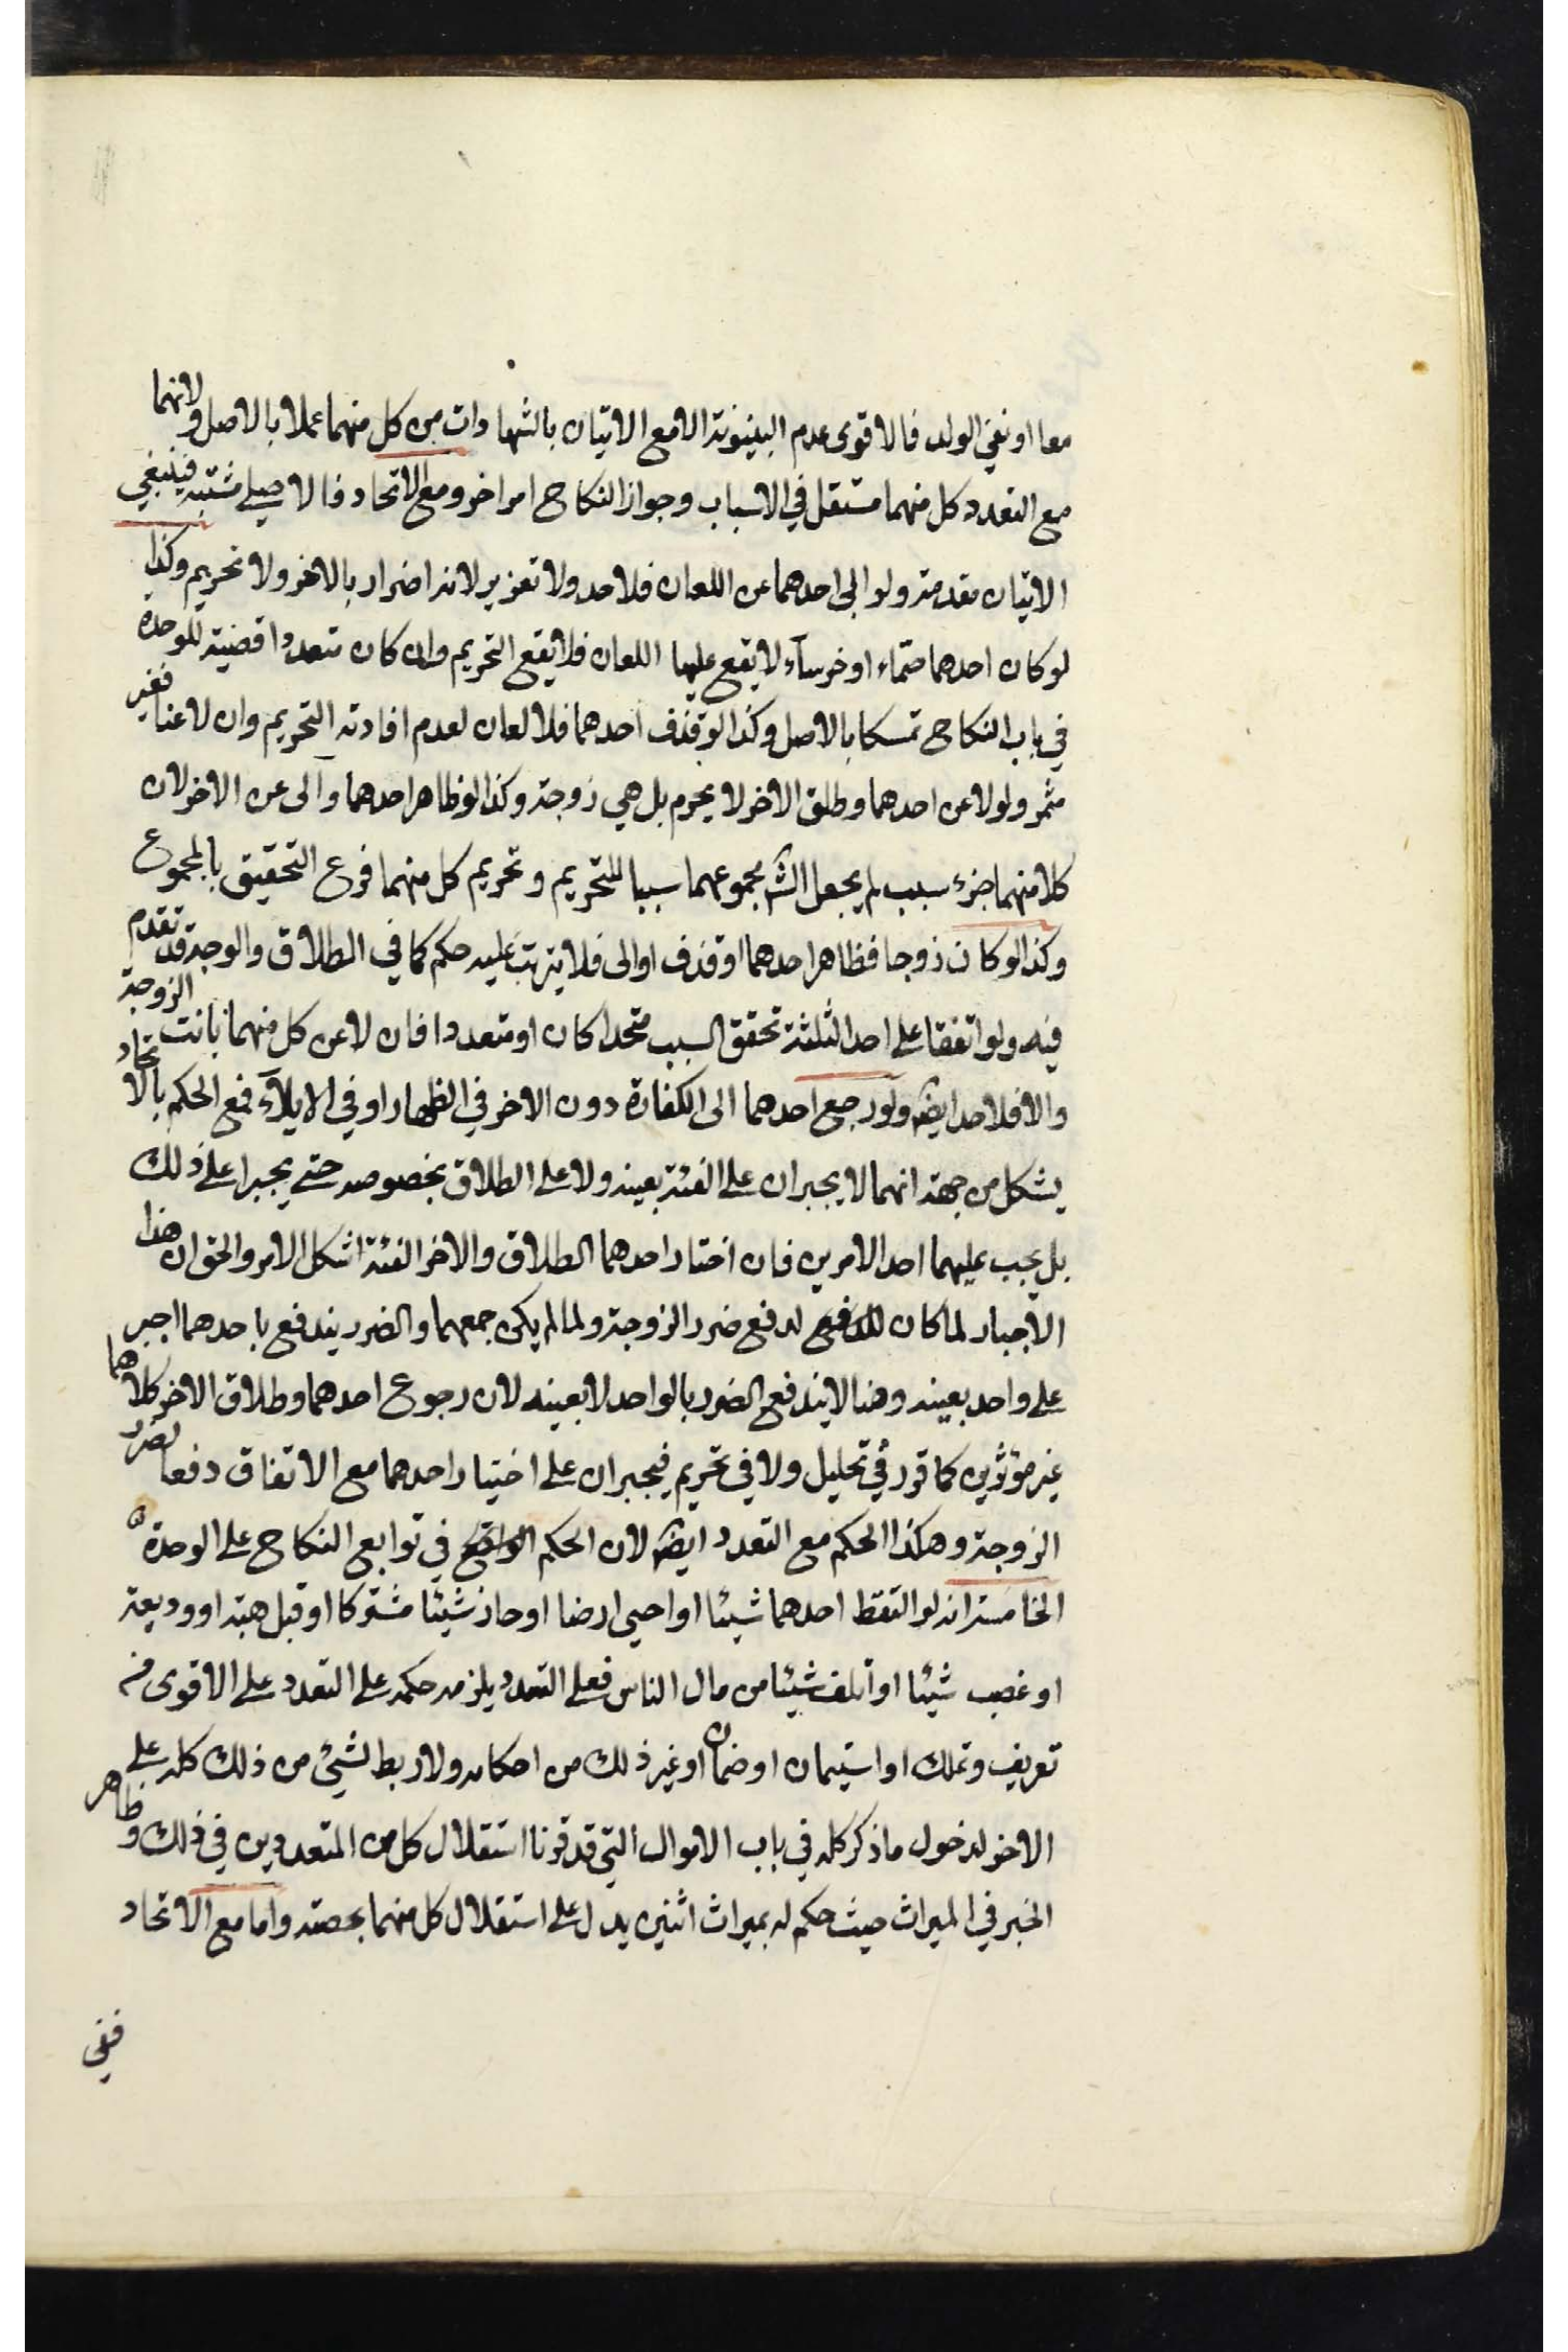 معا او نفي الولد فالاقوى عدم البينونة الا مع الاتيان بالشهادات من كل منهما عملا بالاصل ولانهما
مع التعدد كل منهما مستقل في الاسباب وجواز النكاح امر اخر ومع الاتحاد فالاصلي مشتبه فينبغي
الاتيان مقدمة ولو ابى احدهما عن اللعان فلا حد ولا تعزير لانه اضرار بالاخر ولا تحريم وكذا
لو كان احدهما صماء او خرساء لا يقع عليها اللعان فلا يقع التحريم وان كان متعددا قضية للوحدة
في باب النكاح تمسكا بالاصل وكذا لو قذف احدهما فلا لعان لعدم افادته التحريم وان لاعنا فغير
مثمر ولو لاعن احدهما وطلق الاخر لا يحرم بل هي زوجة وكذا لو ظاهر احدهما وآلى عن الاخر لان
كلا منهما جزء سبب لم يجعل الش مجموعهما سببا للتحريم وتحريم كل منهما فرع التحقيق بالمجموع
وكذا لو كان زوجا فظاهر احدهما او قذف او الى فلا يترتب عليه حكم كما في الطلاق والوجه قد تقدم
فيه ولو اتفقا على احد الثلثة تحقق السبب متحدا كان او متعددا فان لاعن كل منهما بانت الزوجة
والا فلا حد ايضا ولو رجع احدهما الى الكفارة دون الاخر في الظهار او في الايلاء فمع الحكم بالاتحاد
يشكل من جهة انهما لا يجبران على الفئة بعينه ولا على الطلاق بخصوصه حتى يجبرا على ذلك
بل يجب عليهما احد الامرين فان اختار احدهما الطلاق والاخر الفئة اشكل الامر والحق ان هذا
الاجبار لما كان لدفع ضرر الزوجة ولما لم يكن جمعهما والضرر يندفع باحدهما اجبر
على واحد بعينه وهنا لا يندفع الضرر بالواحد لا بعينه لان رجوع احدهما وطلاق الاخر كلاهما
غير مؤثرين كما قرر في تحليل ولا في تحريم فيجبران على اختيار احدهما مع الاتفاق دفعا لضرر
الزوجة وهكذا الحكم مع التعدد ايضا لان الحكم الواقع في توابع النكاح على الوحدة
الخامسة انه لو التقط احدهما شيئا او احيى ارضا او حاز شيئا مشتركا او قبل هبة او وديعة
او غصب شيئا او اتلف شيئا من مال الناس فعلى التعدد يلزمه حكمه على التعدد على الاقوى من
تعريف وتملك او استيمان او ضمان او غير ذلك من احكامه ولا ربط لشيئ من ذلك كله على
الاخر لدخول ما ذكر كله في باب الاموال التي قد قررنا استقلال كل من المتعددين في ذلك وظاهر
الخبر في الميراث حيث حكم له بميراث اثنين يدل على استقلال كل منهما بحصته واما مع الاتحاد
ففي